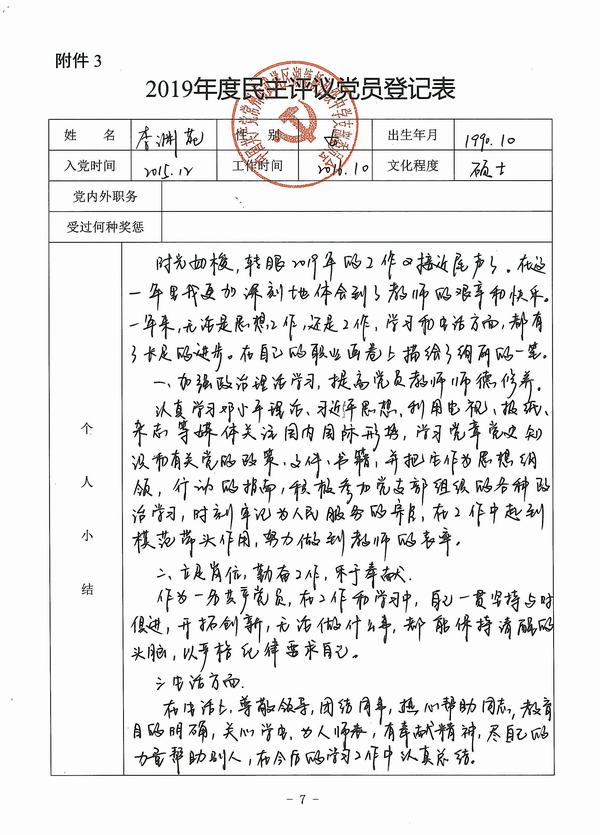 附件 3
2019年度民主评议党员登记表
姓 名 李渊 性 别 出生年月 1990.10
入党时间 2015.12 工作时间 2016.10 文化程度 硕士
党内外职务
受过何种奖惩
个人小结
时光如梭，转眼2019年的工作又接近尾声了。在这
一年里我更加深刻地体会到了教师的艰辛和快乐。
一年来，无论是思想工作，还是工作，学习和生活方面，都有
了长足的进步。在自己的职业画卷上描绘了绚丽的一笔。
一、加强政治理论学习，提高党员教师师德修养。
认真学习邓小平理论、习近平思想，利用电视、报纸、
杂志等媒体关注国内国际形势，学习党章党史知
识和有关党的政策、文件、书籍，并把它作为思想纲
领，行动的指南，积极参加党支部组织的各种政
治学习，时刻牢记为人民服务的宗旨，在工作中起到
模范带头作用，努力做到教师的表率。
二、立足岗位，勤奋工作，乐于奉献.
作为一名共产党员，在工作和学习中，自己一贯坚持与时
俱进，开拓创新，无论做什么事，都能保持清醒的
头脑，以严格纪律要求自己。
三、生活方面.
在生活上，尊敬领导，团结同事，热心帮助同志，教育
目的明确，关心学生，为人师表，有奉献精神，尽自己的
力量帮助别人，在今后的学习工作中认真总结。
- 7 -